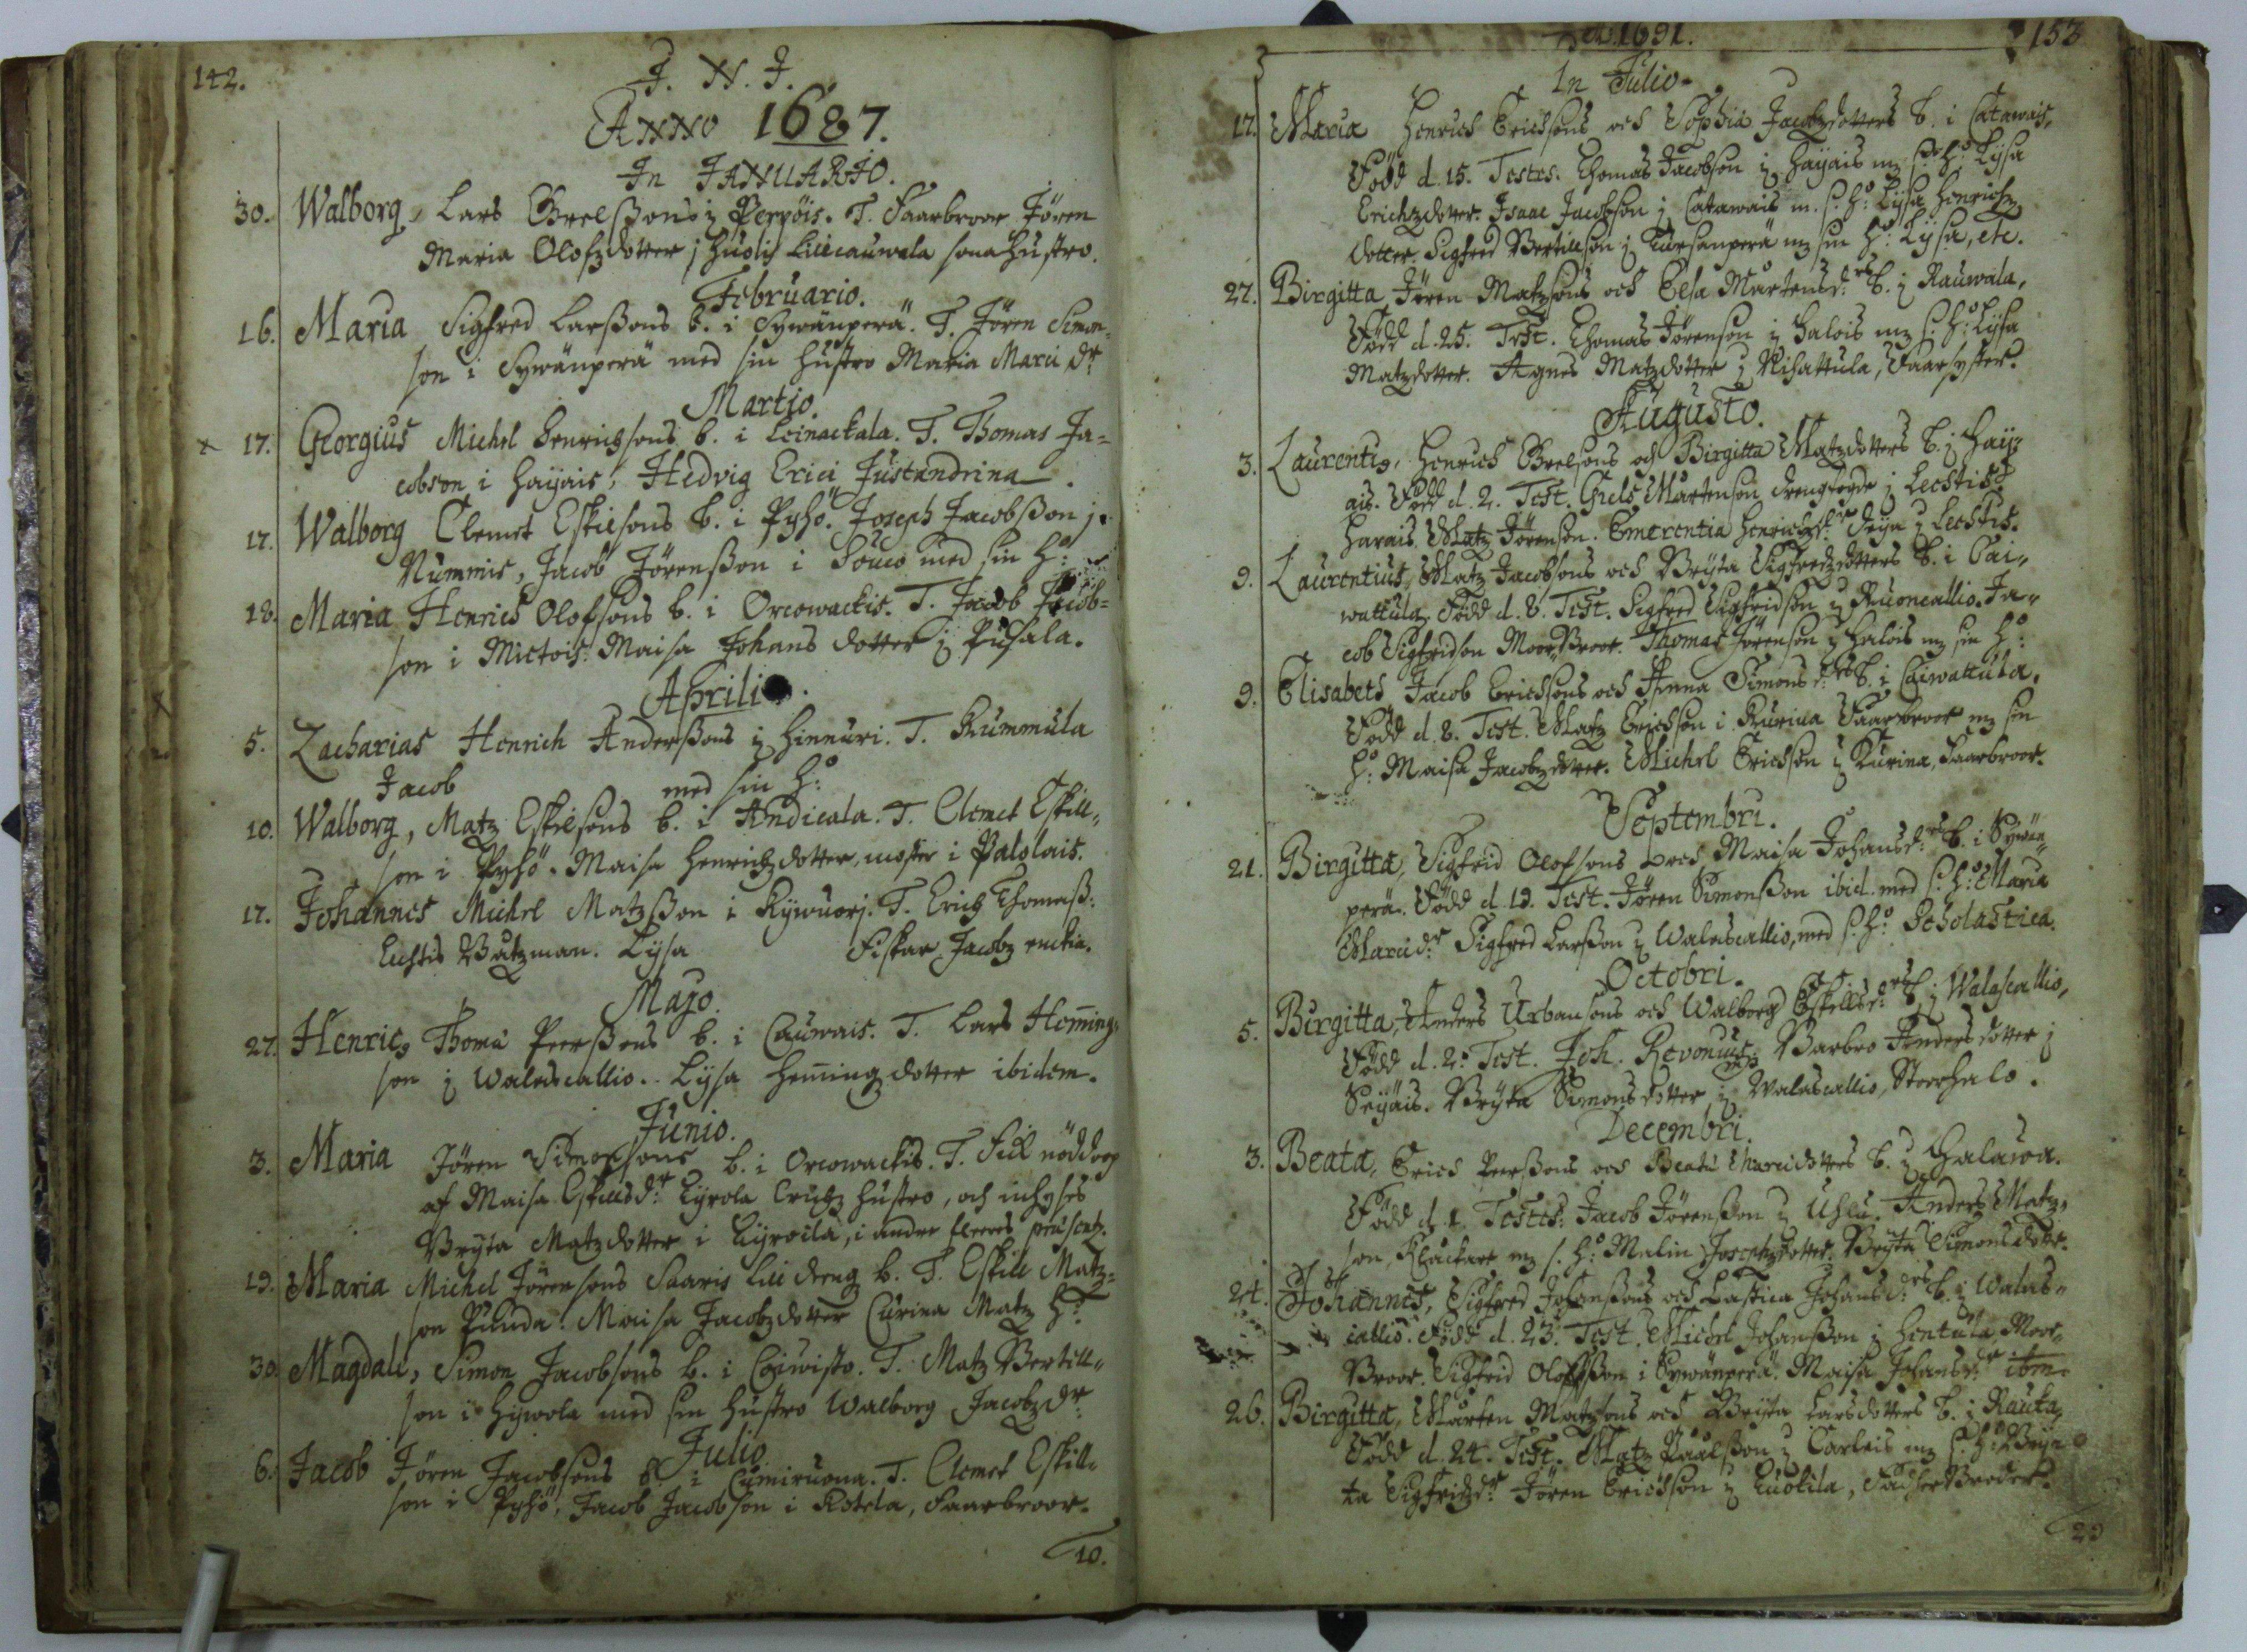 142.
J. N. J.
ANNO 1687.
In JANUARIO.
30. Walborg, Lars Grelssons i Perpöis. T. Faarbroor Jören
Maria Olofzdotter j Huolis Lillcauwala sona hustro.
Februario.
16. Maria Sigfred Larssons b. i Sywänperä. T. Jören Simon-
son i Sywänperä med sin hustro Maria Marci dr
Martio.
17. Georgius Michel Henrichsons b. i Leinackala. T. Thomas Ja=
cobson i Haijais, Hedvig Erici Justandrina.
17. Walborg Clemet Eskilsons b. i Pyhö. Joseph Jacobsson j
Nummis, Jacob Jörensson i Souco med sin H:
18. Maria Henrich Olofsons b. i Orcowackis. T. Jacob Jacob=
son i Mietois. Maisa Johans dotter j Puhala.
Aprili
5. Zacharias Henrich Anderssons j Hinnuri. T. Rummula
Jacob med sin H:
10. Walborg, Matz Eskilsons b. i Andicala. T. Clemet Eskill=
son i Pyhö. Maisa Henrichzdotter, moster i Palolais.
17. Johannes Michel Matzsson i Kywuorj. T. Erich Thomass:
Lechtis Båtzman. Lysa Fiskar Jacobz enckia.
Majo.
27. Henric9 Thoma Peerssons b. i Cauwais. T. Lars Heming=
son j Walascallio. Lysa Hemingdotter ibidem.
Junio.
3. Maria Jören Simonsons b. i Orcowackis. T. Fick nöddop
af Maisa Eskillsdr Lyrola Crutz hustro, och inhyses
Bryta Matzdotter i Kyrocila, i andre fleeres präsentz.
19. Maria Michel Jörensons Saaris Lill dreng b. T. Eskill Matz=
son Punda. Maisa Jacobzdotter Curina Matz H:
30. Magdale, Simon Jacobsons b. i Coiwisto. T. Matz Bertill=
son i Hywola med sin hustro Walborg Jacobzdr
Julio
6. Jacob Jören Jacobsons b. i Cumiruona. T. Clemet Eskill=
son i Pyhö, Jacob Jacobson i Kotela, Faarbroor.
10.
A. 1691. 153
In Julio
17. Maria Henrich Erichsons och Sophia Jacobzdotters b. i Catawais,
Född d. 15. Testes. Thomas Jacobson j Haijais mz s. H: Lysa
Erichzdotter. Isaac Jacobson j Catawais m. s. H: Lysa Henrichz
dotter. Sigfred Bertillson j Kursanperä mz sin H: Lysa, etc.
27. Birgitta Jören Matzsons och Elsa Mårtensd:rs b. j Rauwala,
Född d. 25. Test. Thomas Jörenson j Halois mz s. H: Lysa
Matzdotter. Agnes Matzdotter j Nihattula, Faarsyster.
Augusto.
3. Laurenti9, Henrich Grelsons och Birgitta Matzdotters b. j Haij-
ais. Född d. 2. Test. Grels Mårtenson j Lechtis
Harais. Matz Jörenson. Emerentia Henrichzd:r j Lechtis.
9. Laurentius, Matz Jacobsons och Bryta Sigfredzdotters b. i Cai-
wattula, Född d. 8. Test. Sigfred Sigfridson j Ruoncallio. Ja-
cob Sigfridson Moor Broor. Thomas Jörenson j Halois mz sin H:
9. Elisabeth Jacob Erichsons och Anna Simonsd:rs b. i Caiwattula.
Född d. 8. Test. Matz Erichson i Kurina Faarbroor mz sin
H: Maisa Jacobzdotter. Michel Erichson j Kurina, Faarbroor.
Septembri.
21. Birgitta, Sigfrid Olofsons och Maisa Johansd:rs b. i Sywän-
perä. Född d. 19. Test. Jören Simonsson ibid. med s. H: Maria
Marcid:r Sigfred Larsson j Walascallio, med s. H: Scholastica.
Octobri.
5. Birgitta, Anders Urbansons och Walborg Eskellsd:rs b. j Walascallio,
Född d. 2. Test. Joh. Revonius. Barbro Anders dotter j
Seijäis. Bryta Simonsdotter j Walascallio, Storhalo.
Decembri.
3. Beata, Erich Peerssons och Beata Marcidotters b. j Chalawa.
Född d. 1. Testes: Jacob Jörensson j Uhlu. Anders Matz-
son, Klåckare mz s. H: Malin Josephzdotter. Bryta Simonsdotter.
24. Johannes, Sigfred Johanssons och Lastica Johansd:rs b. j Walas-
callio. Född d. 23. Test. Michel Johansson j Hentula Moor-
Broor. Sigfrid Olofsson i Sywänperä. Maisa Johansd:r ibm.
26. Birgitta, Mårten Matzsons och Bryta Larsdotters b. j Rauta,
Född d. 24. Test. Matz Påålsson j Carleis mz s. H: Bry-
ta Sigfridzd:r Jören Erichson j Luokila, Fadher Broder.
20